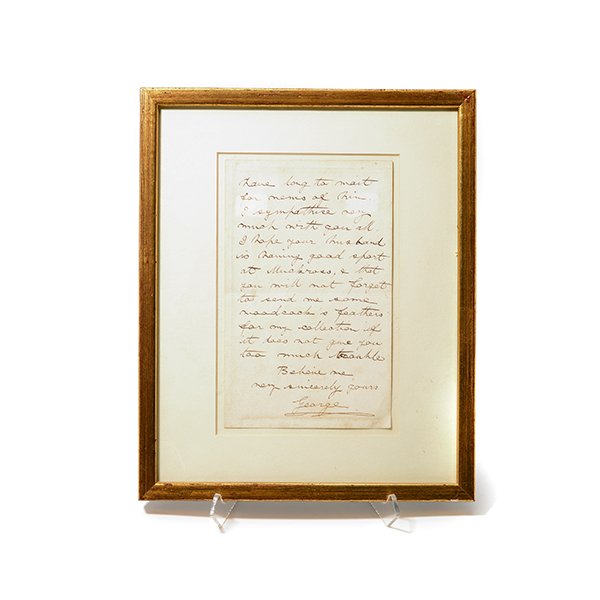 have long to wait
for news of him.
I sympathise very
much with you all.
I hope your husband
is having good sport
at Muckross, & that
you will not forget
to send me some
woodcock's feathers
for my collection if
it does not give you
too much trouble
Believe me
very sincerely yours
George